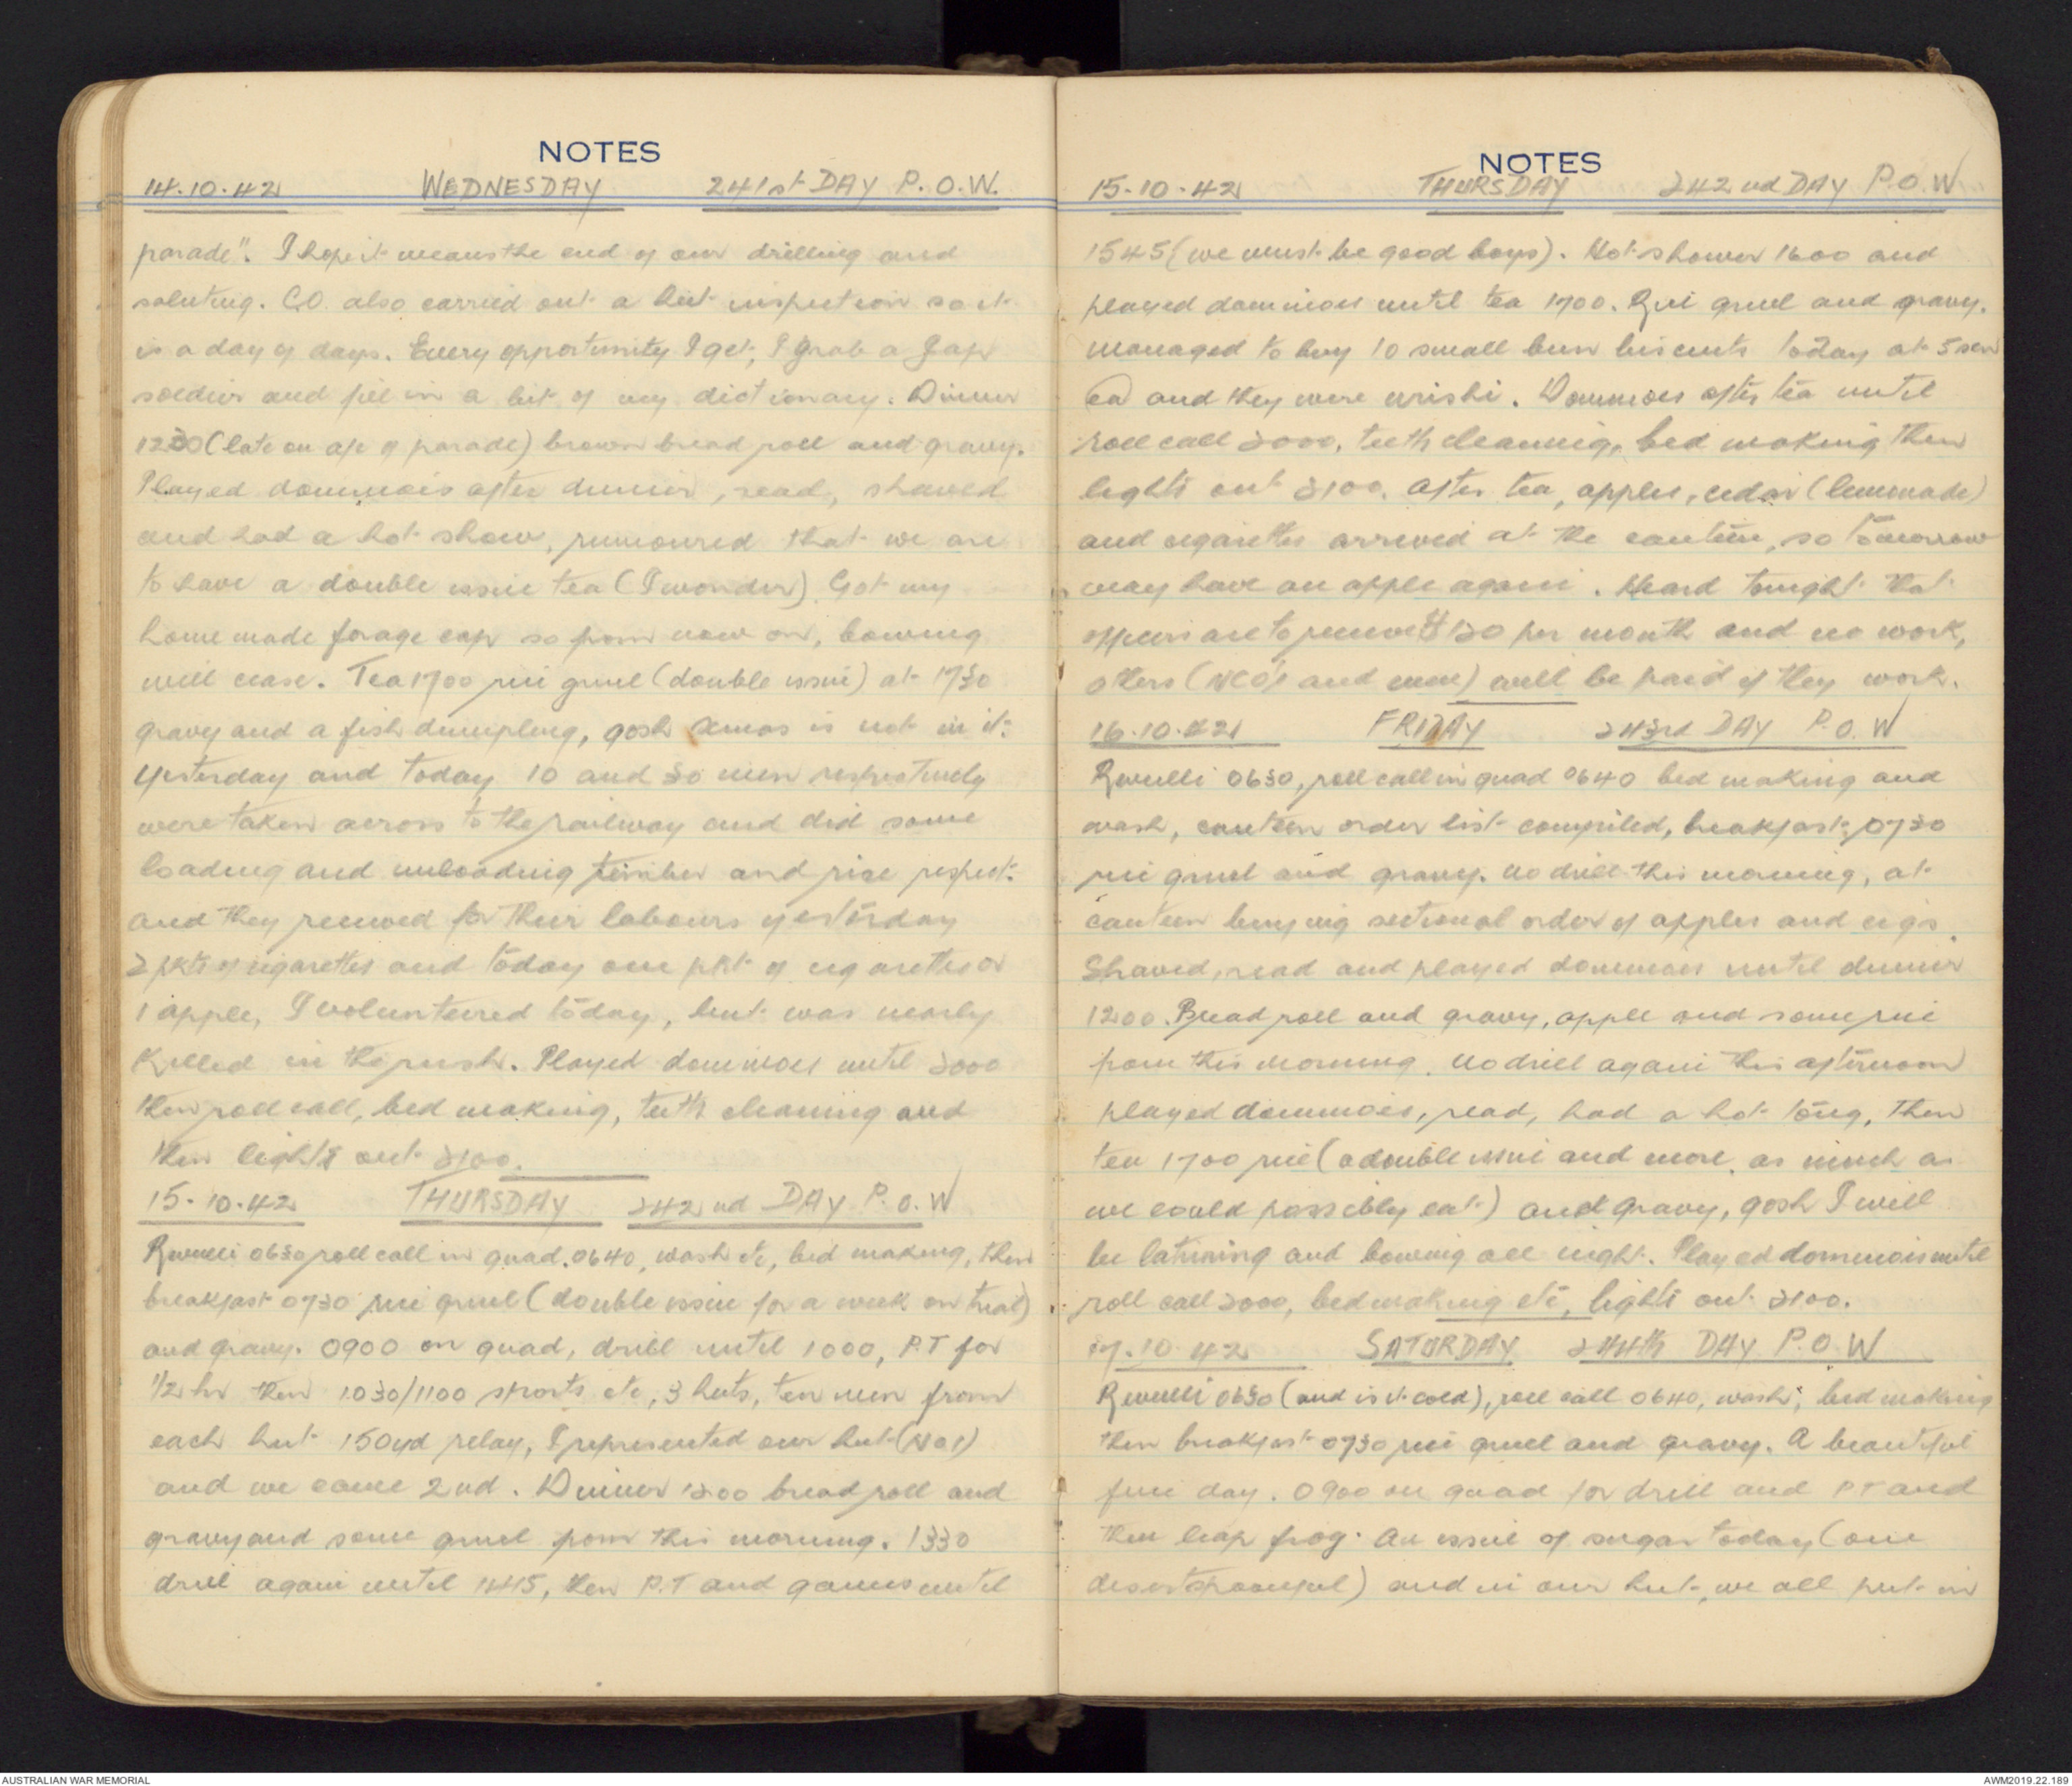 NOTES
14.10.42 WEDNESDAY 241st DAY P.O.W.
parade". I hope it means the end of our drilling and
saluting. C.O. also carried out a hut inspection so it
is a day of days. Every opportunity I get, I grab a Jap
soldier and fill in a bit of my dictionary. Dinner
1230 (late on a/c of parade) brown bread roll and gravy.
Played dominois after dinner, read, shaved
and had a hot show, rumoured that we are
to have a double issue tea (I wonder). Got my
home made forage cap so from now on, bowing
will cease. Tea 1700 rice gruel (double issue) at 1730
gravy and a fish dumpling, gosh Xmas is not in it.
Yesterday and today 10 and 30 men respectively
were taken across to the railway and did some
loading and unloading timber and rice respect.
and they received for their labours yesterday
2 pkts of cigarettes and today one pkt of cigarettes or
1 apple, I volunteered today, but was nearly
killed in the rush. Played dominoes until 2000
then roll call, bed making, teeth cleaning and
then lights out 2100.
15.10.42 THURSDAY 242nd DAY P.O.W
Reveille 0630 roll call in quad. 0640, wash etc, bed making, then
breakfast 0730 rice gruel (double issue for a week on trial)
and gravy. 0900 on quad, drill until 1000, P.T for
1/2 hr then 1030/1100 sports etc, 3 huts, ten men from
each hut 150yd relay, I represented our hut (No 1)
and we came 2nd. Dinner 1200 bread roll and
gravy and some gruel from this morning. 1330
drill again until 1445, then P.T and games until
NOTES
15.10.42 THURSDAY 242nd DAY P.O.W
1545 (we must be good boys). Hot shower 1600 and
played dominoes until tea 1700. Rice gruel and gravy.
managed to buy 10 small bun biscuits today at 5 sen
ea and they were urishi. Dominoes after tea until
roll call 2000, teeth cleaning, bed making then
lights out 2100. After tea, apples, cedar (lemonade)
and cigarettes arrived at the canteen, so tomorrow
may have an apple again. Heard tonight that
officers are to receive 120 per month and no work,
others (NCO's and men) will be paid if they work.
16.10.42 FRIDAY 243rd DAY P.O.W
Reveille 0630, roll call in quad 0640 bed making and
wash, canteen order list compiled, breakfast 0730
rice gruel and gravy. No drill this morning, at
canteen buying sectional order of apples and cigs.
Shaved, read and played dominoes until dinner
1200. Bread roll and gravy, apple and some rice
from this morning. No drill again this afternoon
played dominoes, read, had a hot tong, then
tea 1700 rice (a double issue and more, as much as
we could possibly eat) and gravy, gosh I will
be latrining and bowing all night. Played dominois until
roll call 2000, bed making etc, lights out 2100.
17.10.42 SATURDAY 244th DAY P.O.W
Reveille 0630 (and is it cold), roll call 0640, wash, bed making
then breakfast 0730 rice gruel and gravy. A beautiful
fine day. 0900 on quad for drill and PT and
then leap frog. An issue of sugar today (one
desertspoonful) and in our hut, we all put in
AUSTRALIAN WAR MEMORIAL
AWM2019.22.189